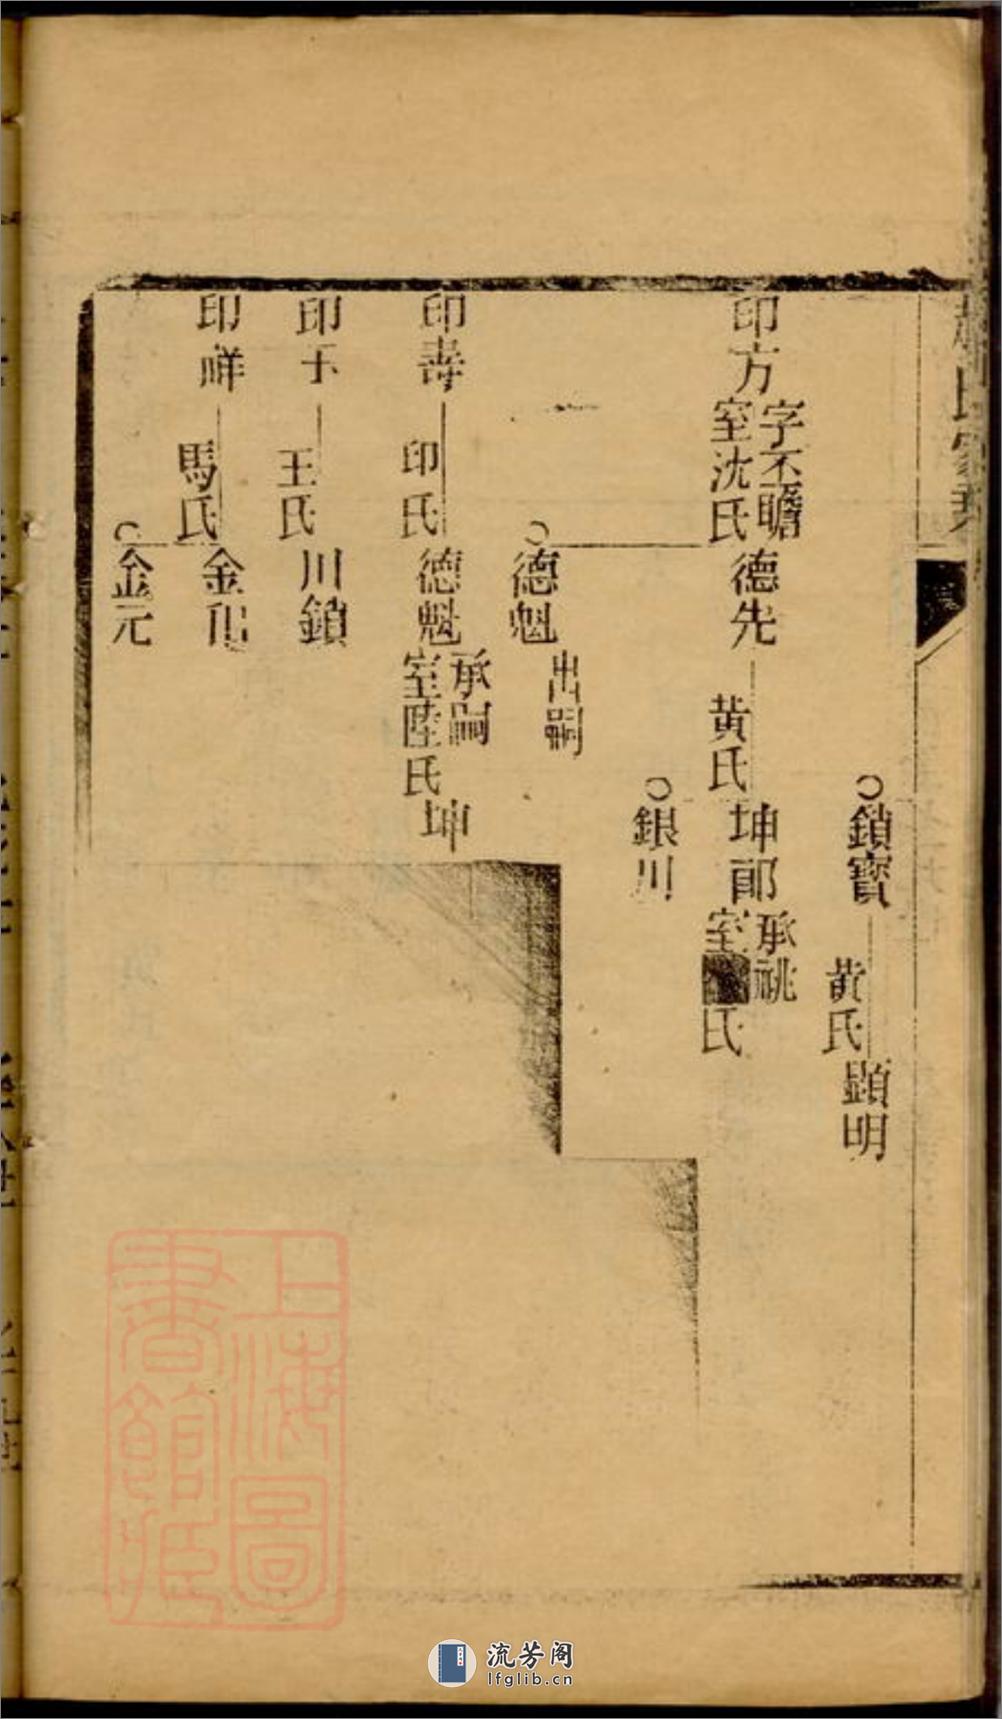 氏家
鎖寶
黄氏
顯明
印方
字丕瞻
室沈氏
德先
黄氏
坤郎
承祧
室
氏
銀川
德魁
出嗣
印壽
印氏
德魁
承嗣
室陸氏
坤
印玉
王氏
川鎖
印祥
馬氏
金化
金元
上海圖
書館藏
流芳阁
lfglib.cn